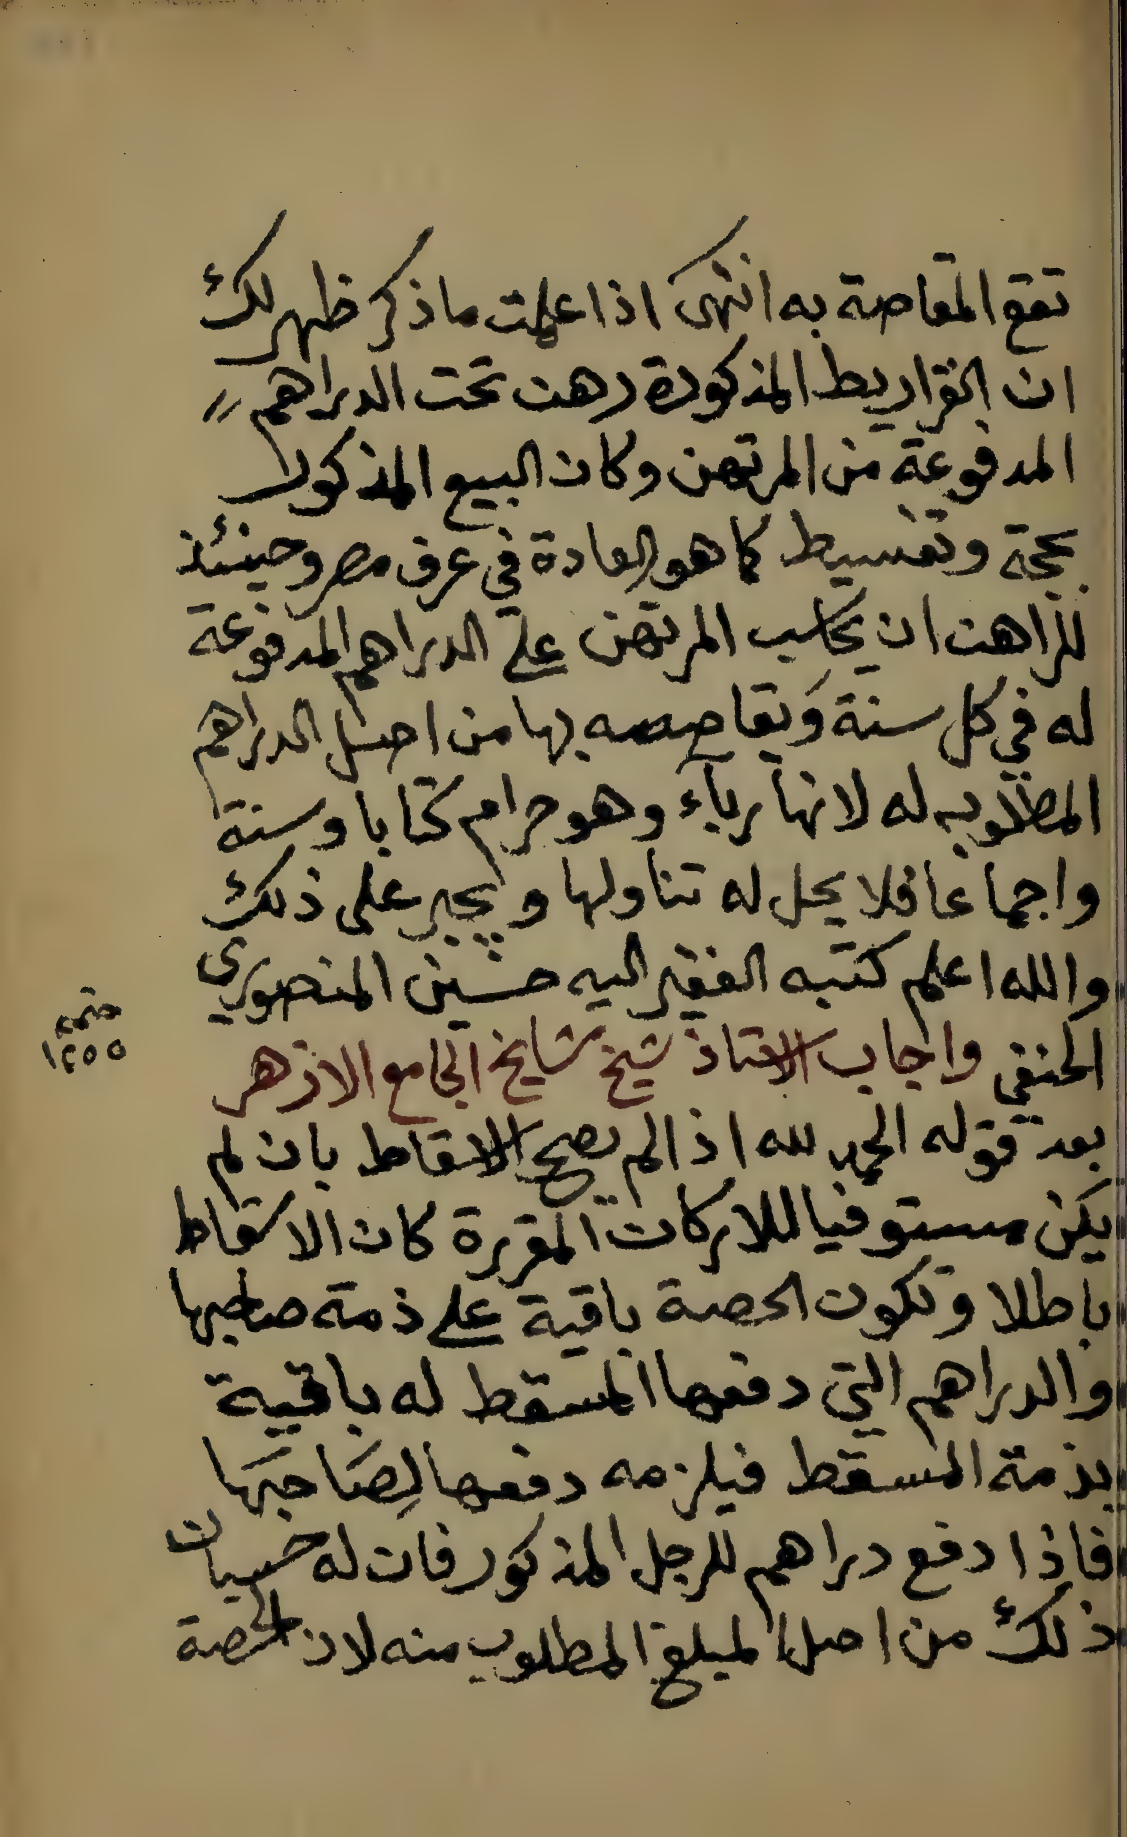 تقع المقاصة به انتهى اذا علمت ما ذكر ظهر لك
ان القراريط المذكورة رهن تحت الدراهم
المدفوعة من المرتهن وكان البيع المذكور
بحجة وتقسيط كما هو العادة في عرف مصر وحينئذ
للراهن ان يحاسب المرتهن على الدراهم المدفوعة
له في كل سنة ويقاصصه بها من اصل الدراهم
المطلوبه له لانها رباء وهو حرام كتابا وسنة
واجماعا فلا يحل له تناولها ويجبر على ذلك
والله اعلم كتبه الفقير اليه حسين المنصوري
الحنفي واجاب الاستاذ شيخ مشايخ الجامع الازهر
بعد قوله الحمد لله اذا لم يصح الاسقاط بان لم
يكن مستوفيا للاركان المقررة كان الاسقاط
باطلا وتكون الحصة باقية على ذمة صاحبها
والدراهم التي دفعها المسقط له باقية
بذمة المسقط فيلزمه دفعها لصاحبها
فاذا دفع دراهم للرجل المذكور فان له حسبان
ذلك من اصل المبلغ المطلوب منه لان الحصة
١٢٥٥